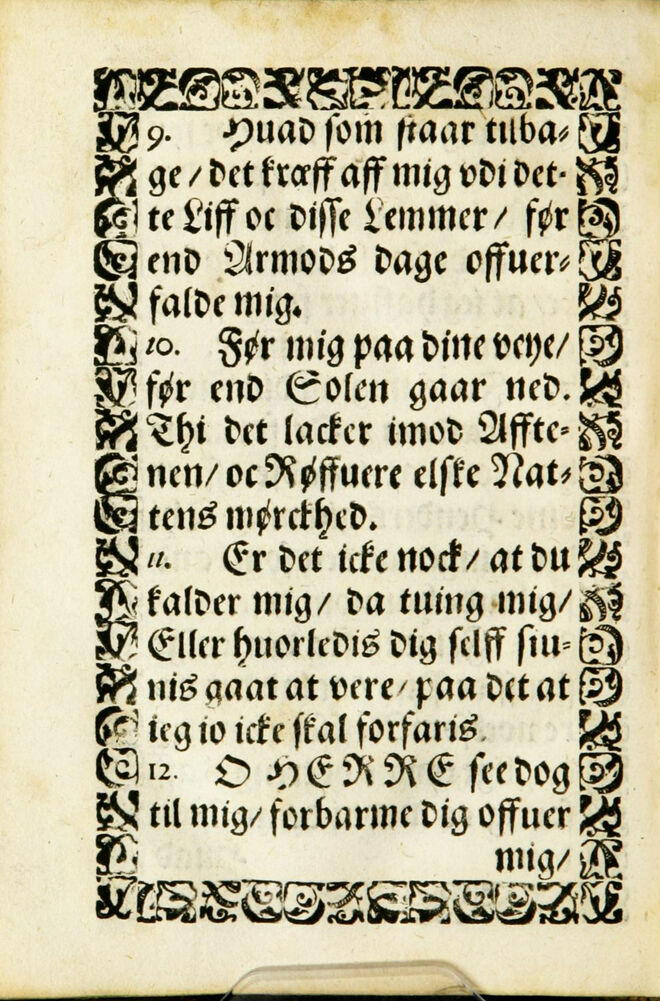 9. Huad som staar tilba⸗
ge / det kræff aff mig vdi det⸗
te Liff oc disse Lemmer / før
end Armods dage offuer⸗
falde mig.
10. Før mig paa dine veye /
før end Solen gaar ned.
Thi det lacker imod Affte⸗
nen / oc Røffuere elske Nat⸗
tens mørckhed.
11. Er det icke nock / at du
kalder mig / da tuing mig /
Eller huorledis dig selff siu⸗
nis gaat at vere / paa det at
ieg io icke skal forfaris.
12. O HERRE see dog
til mig / forbarme dig offuer
mig /